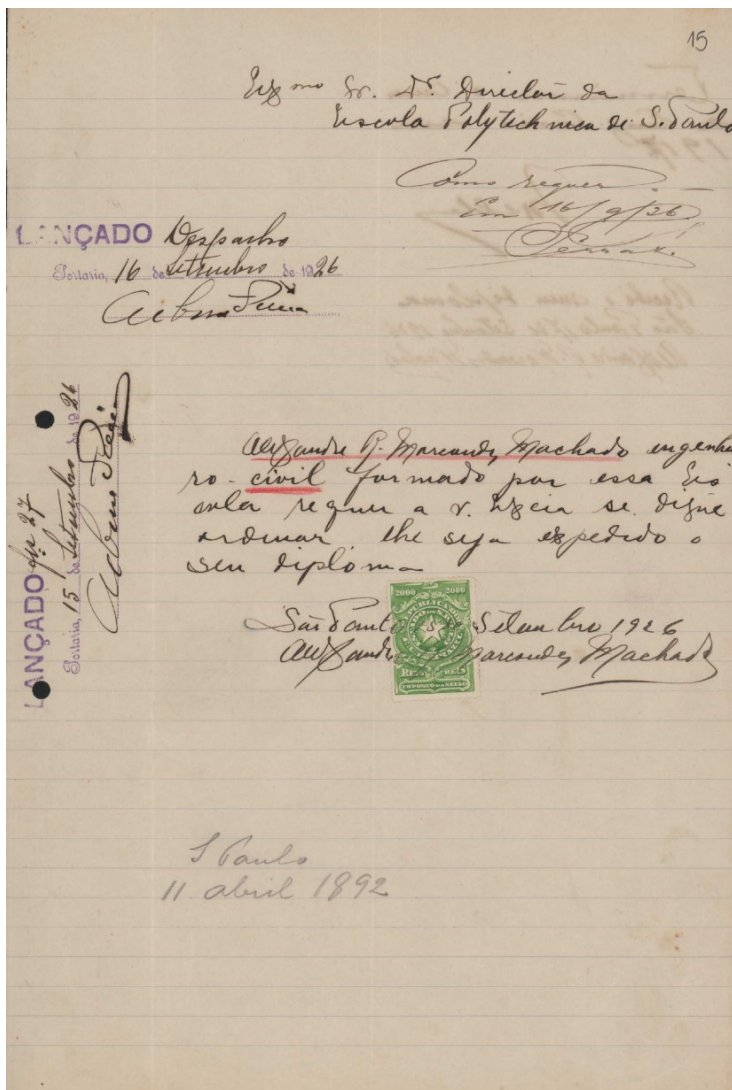 15
Exmo Sr. Dr. Director da
Escola Polytechnica de S. Paulo
Como requer.
Em 16/9/26
LANÇADO Despacho
Portaria, 16 de Setembro de 1926
LANÇADO
Portaria, 15 de Setembro de 1926
Alexandre R. Marcondes Machado engenhei
ro-civil formado por essa Es
cola requer a v. Excia se digne
ordenar lhe seja expedido o
seu diploma
2000 2000
São Paulo Setembro 1926
Alexandre Marcondes Machado
S Paulo
11 abril 1892